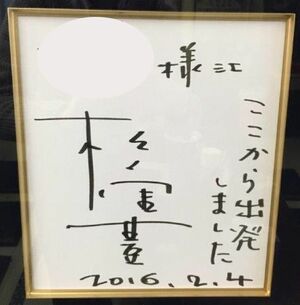 様江
ここから出発
しました
松重豊
2016.2.4